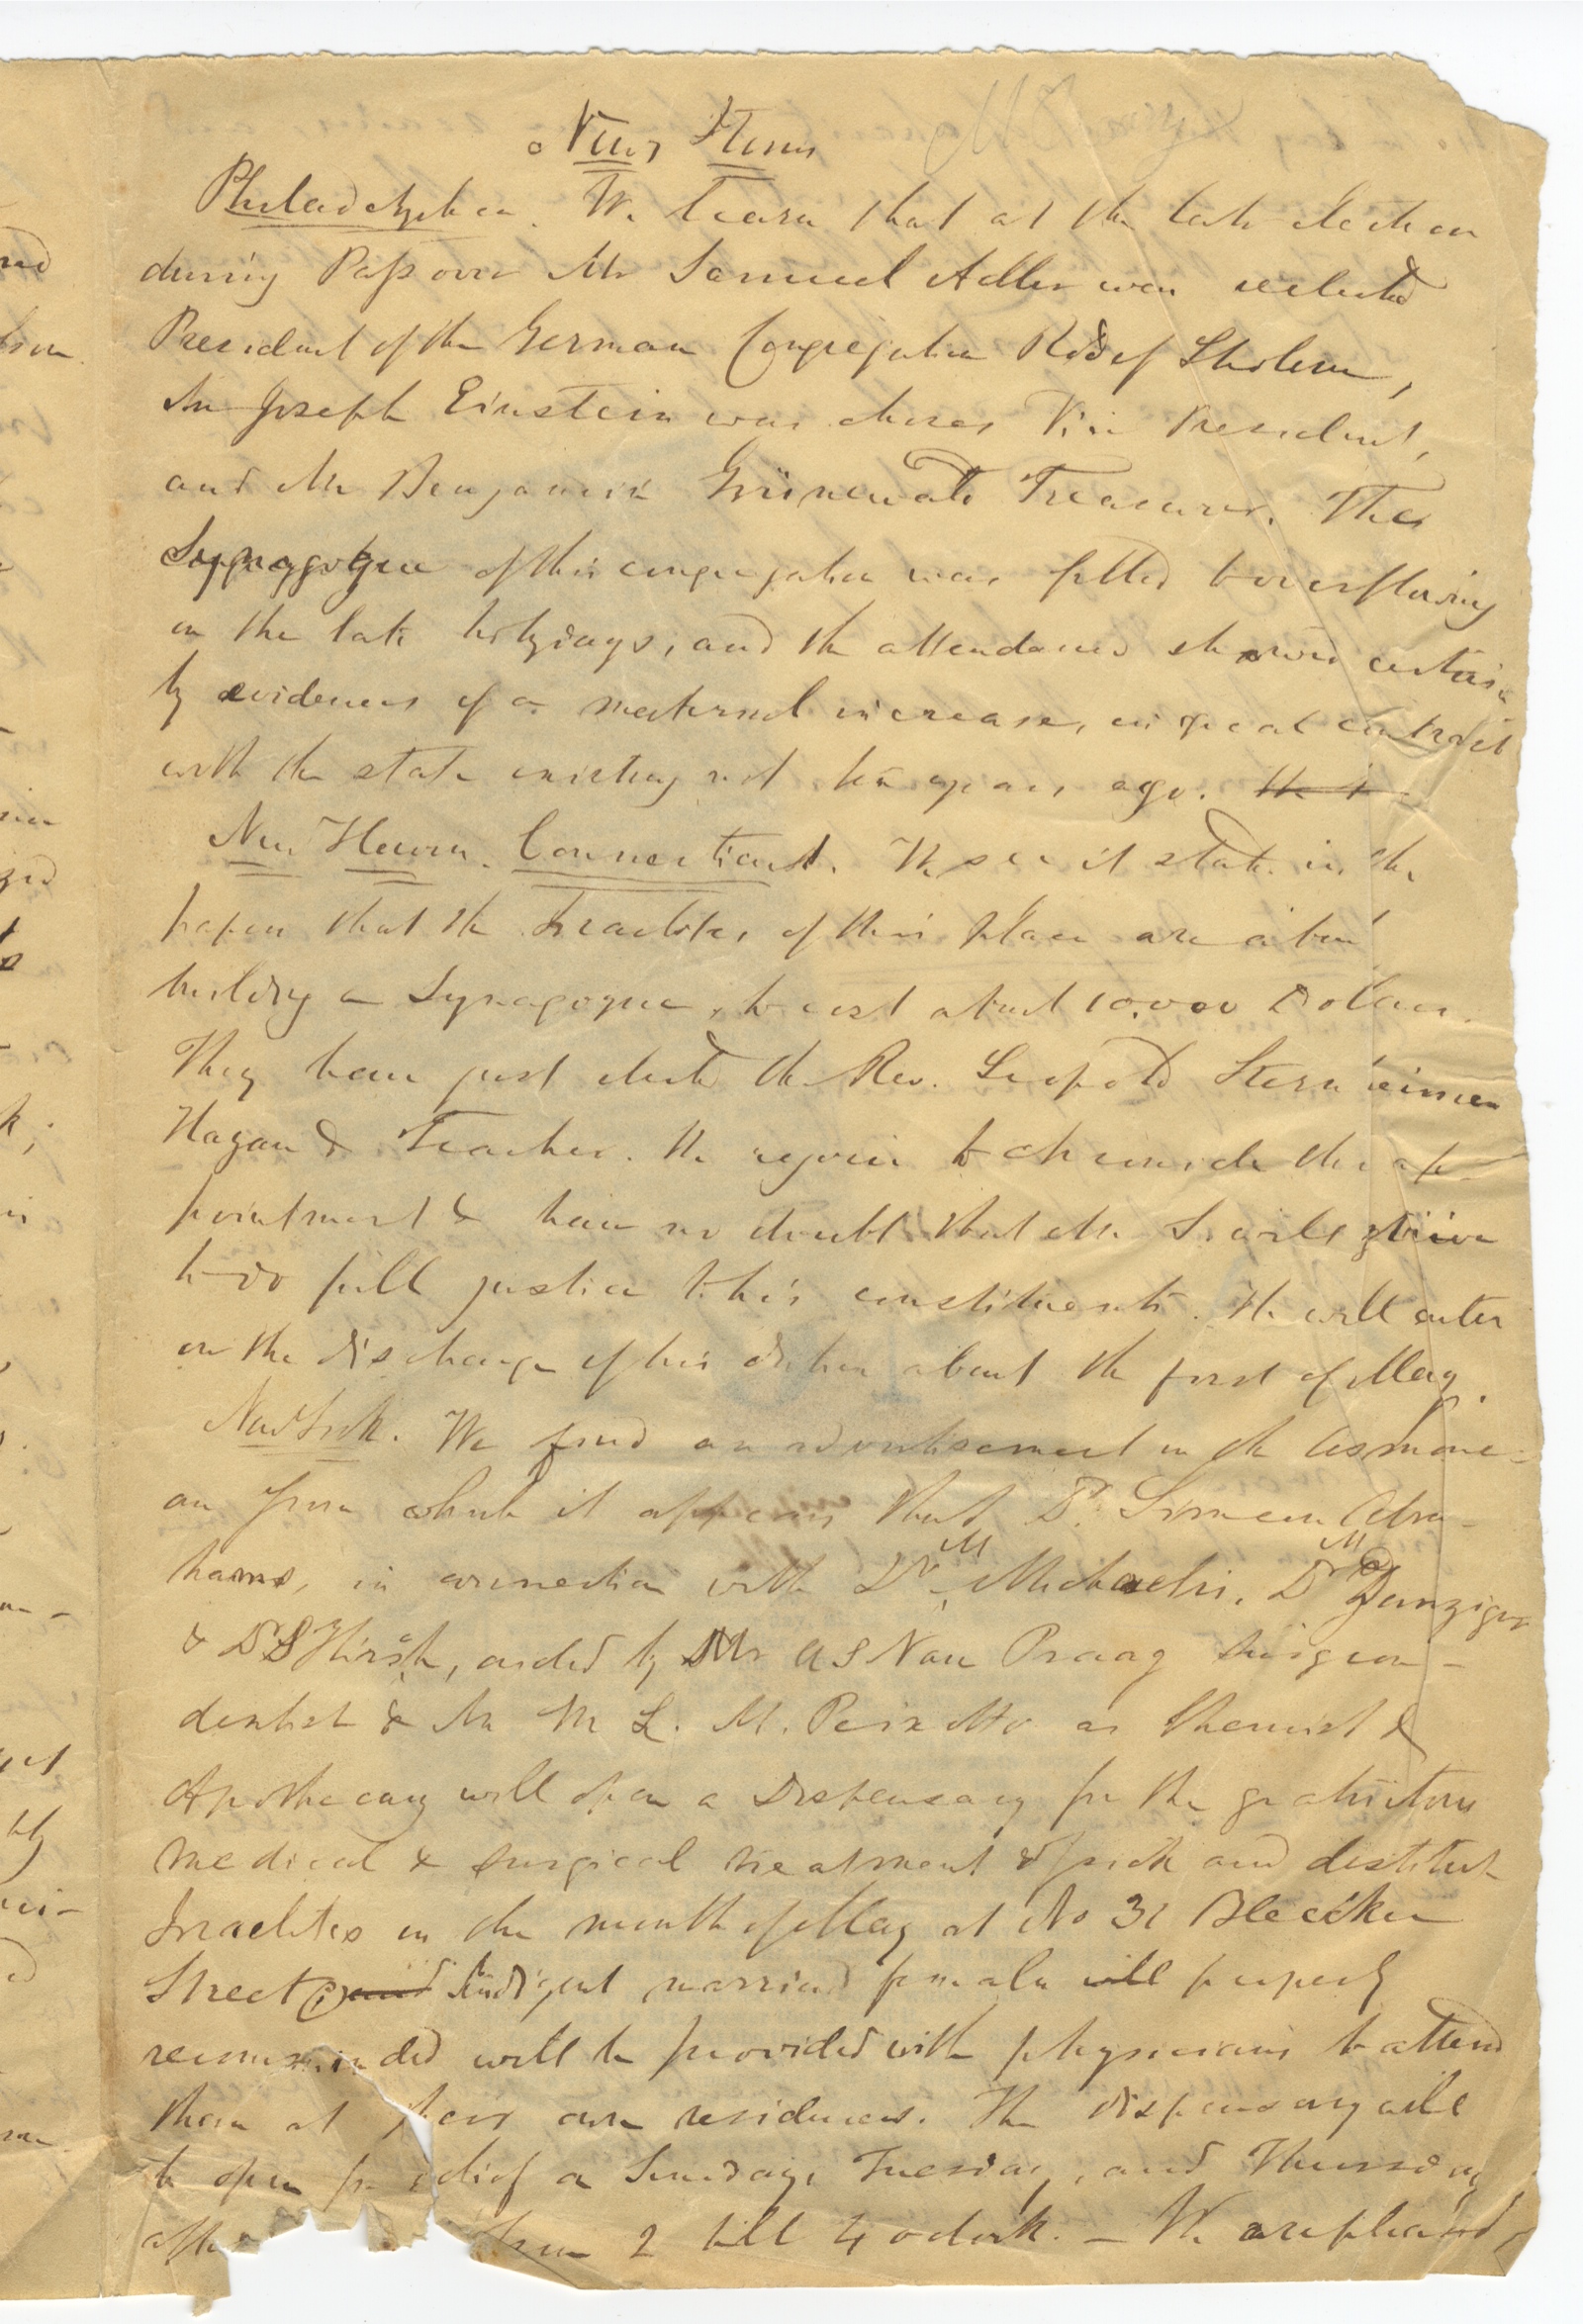 News Items
Philadelphia. We learn that at the late election
during Passover Mr Samuel Adler was reelected
President of the German Congregation Rodef Shalom,
Mr Joseph Einstein was chosen Vice President,
and Mr Benjamin Grünewald Treasurer. The
Synagogue of this congregation was filled to overflowing
on the late holydays, and the attendance showed certain
ly evidences of a material increase, in great contrast
with the state existing not ten years ago.
New Haven. Connecticut. We see it state in the
papers that the Israelites of this place are about
building a Synagogue, to cost about 10,000 Dollars.
They have just elected the Rev. Leopold Sternheimer
Hazan & Teacher. We rejoice to chronicle this ap
pointment & have no doubt that Mr S. will strive
to do full justice to his constituents. He will enter
on the discharge of his duties about the first of May.
New York. We find an advertisement in the Asmone-
an from which it appears that Dr. Simeon Abra-
hams, in connection with Dr M Michaelis, Dr M Danziger
& Dr S Hirsh, aided by Mr A S Van Praag surgeon-
dentist & Mr M L. M. Peixotto as Chemist &
Apothecary will open a Dispensary for the gratuitous
medical & surgical treatment of sick and destitute
Israelites in the month of May at No 31 Bleecker
Street Indigent married females will properly
recommended will be provided with physicians to attend
them at their own residences. The dispensary will
be open for relief on Sunday, Tuesday, and Thursday
from 2 till 4 oclock. — We are pleased